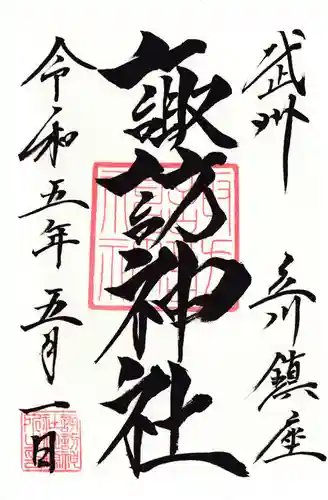 武州 立川鎮座
諏訪神社
令和五年五月一日